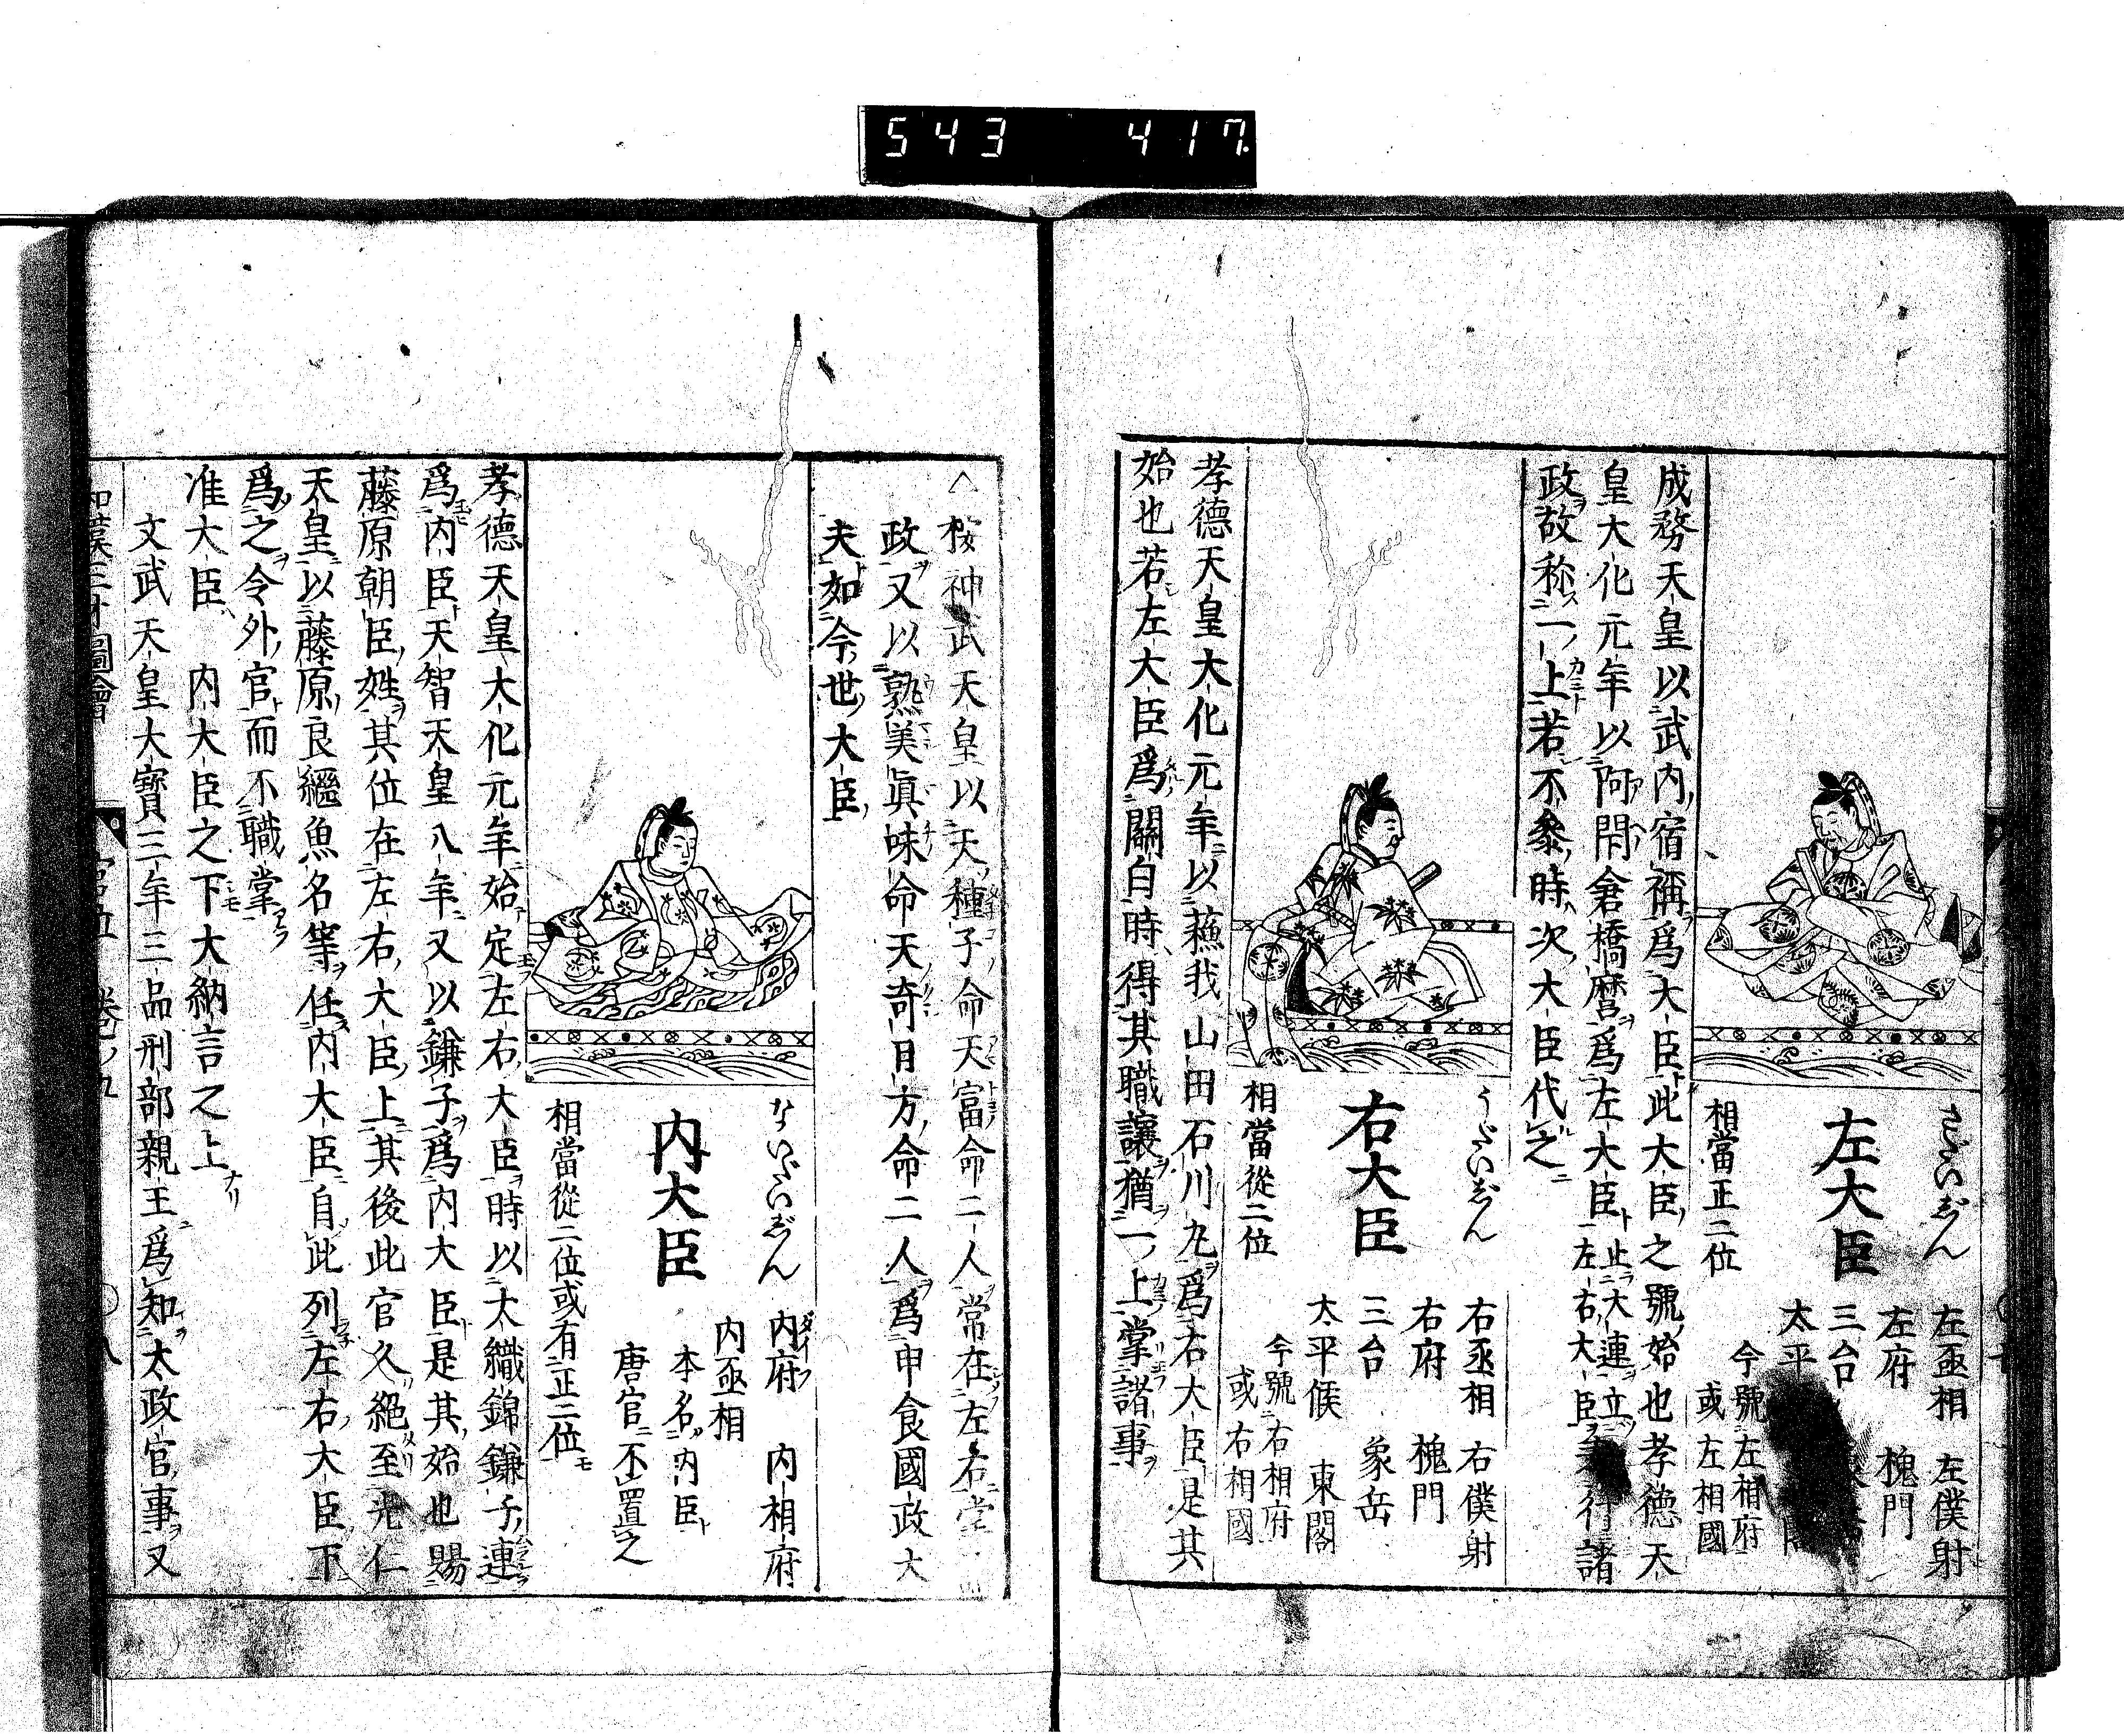 543 417
さだいじん
左大臣
相當正二位
左丞相 左僕射
左府 槐門
三台
太平
今號左相府
或左相國
成務天皇以武内宿祢爲大臣此大臣之號始也孝德天
皇大化元年以阿閇倉橋麿爲左大臣止大連立左右大臣 行諸
政故称一上若不參時次大臣代之
うだいじん
右大臣
相當從二位
右丞相 右僕射
右府 槐門
三台 象岳
太平候 東閣
今號右相府
或右相國
孝德天皇大化元年以蘓我山田石川丸爲右大臣是其
始也若左大臣爲關白時得其職讓猶一上掌諸事
按神武天皇以天種子命天富命二人常在左右掌
政又以熟美眞味命天奇日方命二人爲申食國政大
夫如今世大臣
ないだいじん
内大臣
相當從二位或有正二位
内府 内相府
内丞相
本名内臣
唐官不置之
孝德天皇大化元年始定左右大臣時以大織錦鎌子連
爲内臣天智天皇八年又以鎌子爲内大臣是其始也賜
藤原朝臣姓其位在左右大臣上其後此官久絕至光仁
天皇以藤原良繼魚名等任内大臣自此列左右大臣下
爲之令外官而不職掌
准大臣 内大臣之下大納言之上
文武天皇大寶三年三品刑部親王爲知太政官事又
和漢三才圖會 官位 卷ノ九 八